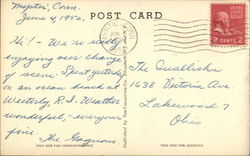 Conn.
June 4, 1952.
POST CARD
Hi! - We're really
enjoying our change
of scene. Spent yesterday
on an ocean beach at
Westerly, R.I. Weather
wonderful, everyone
fine. The
The
1638 Victoria Ave.
Lakewood 7
Ohio
UNITED STATES
2 CENTS 2
THIS SIDE FOR CORRESPONDENCE
THIS SIDE FOR ADDRESS